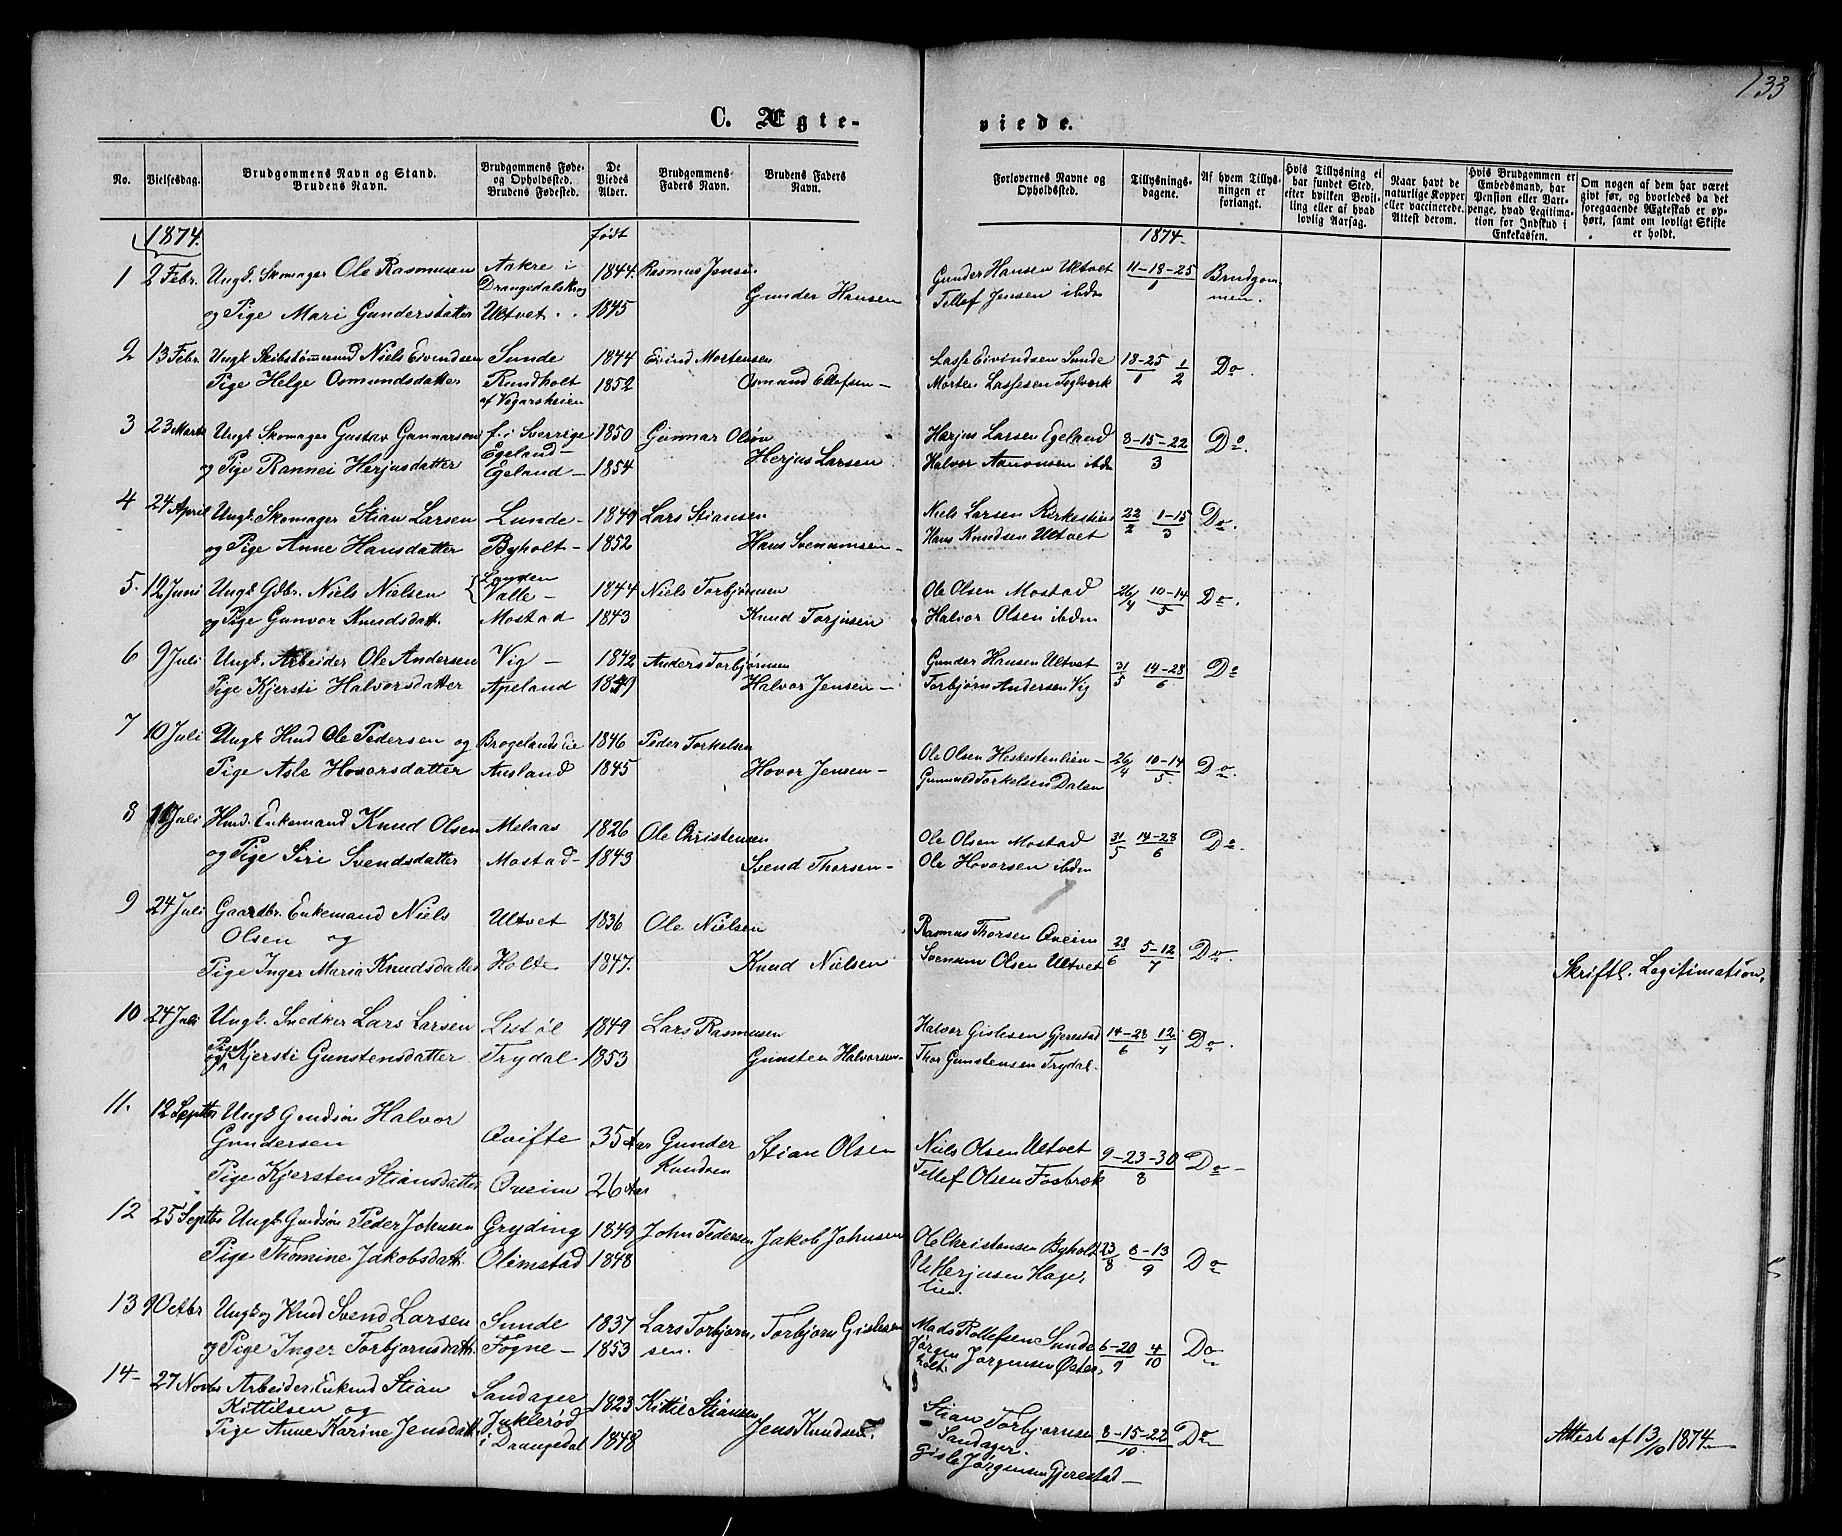 133
C. Ægte-
viede.
No.
Vielsesdag.
Brudgommens Navn og Stand.
Brudens Navn.
Brudgommens Føde-
og Opholdssted.
Brudens Fødested.
De
Viedes
Alder.
Brudgommens
Faders Navn.
Brudens Faders
Navn.
Forlovernes Navne og
Opholdssted.
Tillysnings-
dagene.
Af hvem Tillys-
ningen er
forlangt.
Hvis Tillysning ei
har fundet Sted,
efter hvilken Bevil-
ling eller af hvad
lovlig Aarsag.
Naar havt de
naturlige Kopper
eller vaccinerede.
Attest derom.
Hvis Brudgommen er
Embedsmand, har
Pension eller Vart-
penge, hvad Legitima-
tion for Indskud i
Enkekassen.
Om nogen af dem har været
gift før, og hvorledes da det
foregaaende Ægteskab er op-
hørt, samt om lovligt Skifte
er holdt.
1874.
født
1874.
1 2 Febr. Ungk. Skomager Ole Rasmusen Aakre i 1844. Rasmus Jensen Gunder Hansen Ultvet 11-18-25 Brudgom-
Drangedalskog Gunder Hansen Tellef Jensen ibdm 1 men.
og Pige Mari Gundersdatter Ultvet 1845
2 13 Febr. Ungk. Skibstømmermd Niels Eivindsen Sunde 1844 Eivind Mortensen Lasse Eivindsen Sunde 18-25/1 1/2 Do
Pige Helge Osmundsdatter Rundholt 1852 Osmund Ellefsen - Morten Lassesen Teglverk
af Vegarsheien
3 23 Marts Ungk. Skomager Gustav Gunnarson f. i Sverrige 1850 Gunnar Olson Harjus Larsen Egeland 8-15-22 Do.
Egeland - Herjus Larsen 3
og Pige Rannei Herjusdatter Egeland - 1854 Halvor Aanonsen ibdm
4 24 April Ungk. Skomager Stian Larsen Lunde - 1849 Lars Stiansen Niels Larsen 22/2 1-15/3 Do.
og Pige Anne Hansdatter Byholt - 1852 Hans Svenumsen - Hans Knudsen Ultvet
5. 12 Juni Ungk. Gdbr. Niels Nielsen Landen 1844 Niels Torbjørnsen Ole Olsen Mostad 26/4 10-14/5 Do.
Valle -
og Pige Gunvor Knudsdatt. Mostad 1843 Knud Torjusen Halvor Olsen ibdm
6 9 Juli Ungk. Arbeider Ole Andersen Vig - 1842 Anders Torbjørnsen Gunder Hansen Ultvet 31/5 14-28/6 Do
Pige Kjersti Halvorsdatter Apeland 1849 Halvor Jensen - Torbjørn Andersen Vig
7 10 Juli Ungk. Hmd Ole Pedersen og Brogelandslie 1846 Peder Torkelsen Ole Olsen Heskestenlien - 26/4 10-14/5 Do.
Pige Asle Hovorsdatter Ausland 1845 Hovor Jensen - Gunnuld Torkelsen Dalen
8 11 Juli Hmd. Enkemand Knud Olsen Melaas 1826 Ole Christensen Ole Olsen Mostad 31/5 14-28/6 Do.
og Pige Siri Svendsdatter Mostad - 1843 Svend Thorsen - Ole Hovorsen ibdm
9 24 Juli Gaardbr. Enkemand Niels Ultvet 1836 Ole Nielsen Rasmus Thorsen Qveim 28/6 5-12/7 Do
Olsen og
Pige Inger Maria Knudsdatter Holte 1847. Knud Nielsen Svenum Olsen Ultvet Skriftl. Legitimation.
10 24 Juli Ungk. Snedker Lars Larsen Listøl 1849 Lars Rasmusen Halvor Gislesen Gjerestad 14-28/6 12/7 Do.
og Pige Kjersti Gunstensdatter Trydal - 1853 Gunsten Halvorsen - Thor Gunstensen Trydal -
11. 12 Septbr Ungk. Gmdsøn Halvor
Gundersen Qvifte 35 Aar Gunder Stian Olsen Niels Olsen Ultvet 9-23-30 Do -
Knudsen 8
Pige Kjersten Stiansdatter Qveim 26 Aar Tellef Olsen Fosbrok
12 25 Septbr Ungk. Gmdsøn Peder Johnsen Gryding 1849 John Pedersen Jakob Johnsen Ole Christensen Byholt 23/8 6-13/9 Do
Pige Thomine Jakobsdatt. Olimstad 1848 Ole Herjusen Hage-
lien.
13 9 Octbr Ungk og Hmd Svend Larsen Sunde 1837 Lars Torbjørn- Torbjørn Gislesen Mads Rollefsen Sunde 6-20/9 4/10 Do
og Pige Inger Torbjørnsdatt. Fogne - 1853 sen. Jørgen Jørgensen Øster-
holt.
14- 27 Novbr Arbeider, Enkmd Stian Sandager 1823 Kittil Stiansen Stian Torbjørnsen 8-15-22 Do
Kittilsen og Sandager. 10
Pige Anne Karine Jensdatt. i Drangedal 1848 Jens Knudsen. Gisle Jørgensen Gjerestad - Attest af 13/10 1874